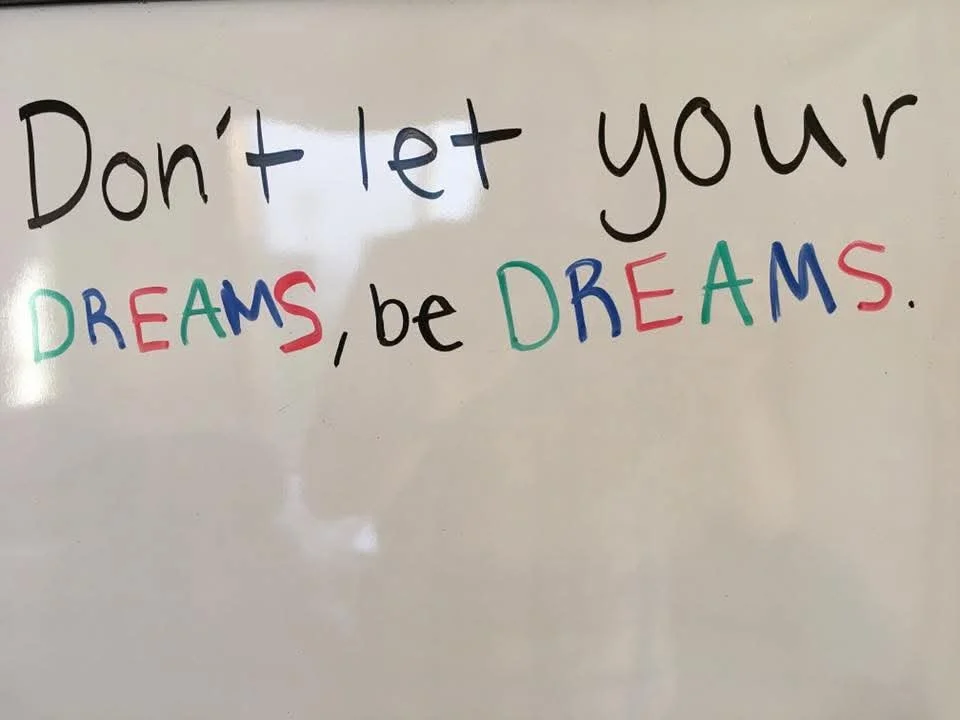 Don't let your
DREAMS, be DREAMS.